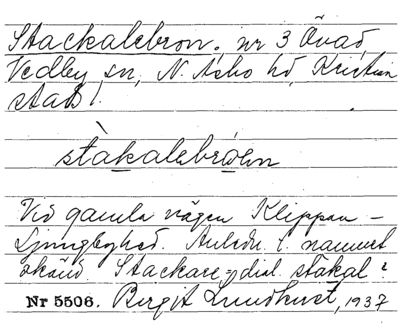 Stackalebron, nr 3 Övad,
Vedby sn, N. Åsbo hd, Kristian
stads l.
stàkalebrón
Vid gamla vägen Klippan –
Ljungbyhed. Anledn. t. namnet
okänd. Stackare = dial. stakal?
Nr 5506. Birgit Lundkvist, 1937